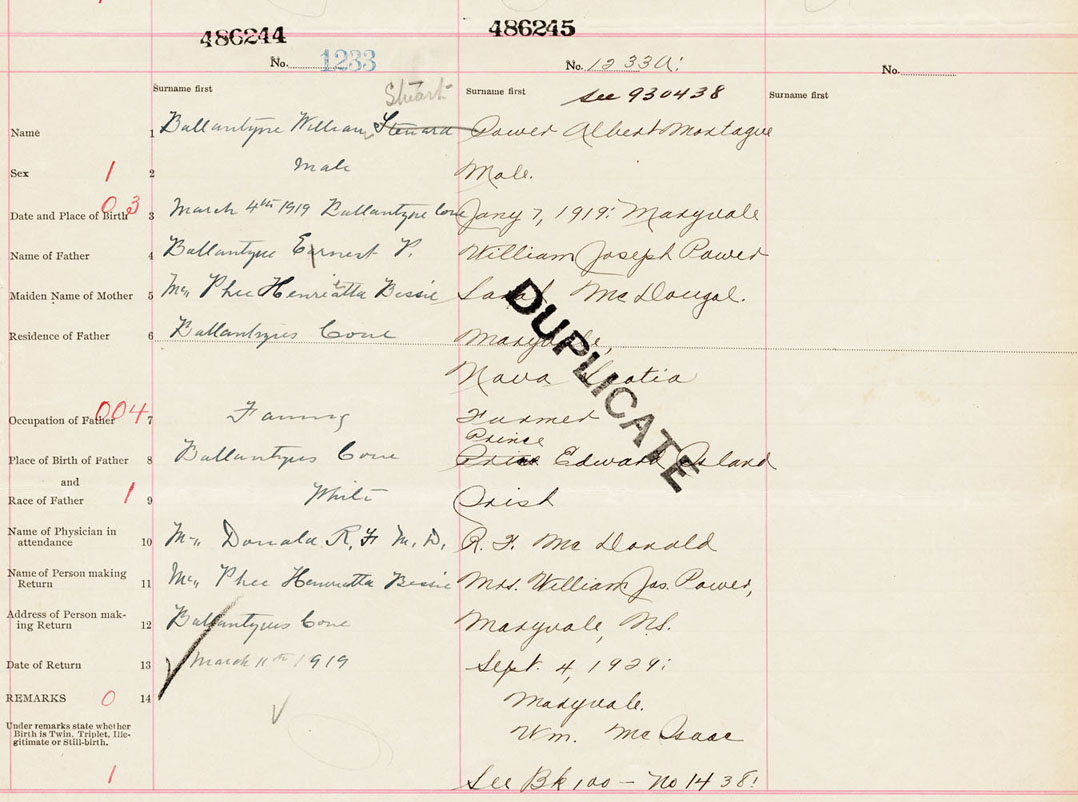 486244 486245
No. 1233 No. 1233A: No.
Stuart
Surname first Surname first Surname first
see 930438
Name 1 Ballantyne William Steward Power Albert Montague
Sex 1 2 Male Male.
Date and Place of Birth 03 3 March 4th 1919 Ballantyne Cove Jany 7, 1919: Maryvale
Name of Father 4 Ballantyne Earnest P. William Joseph Power
Maiden Name of Mother 5 Mc Phee Henrietta Bessie Sarah McDougal.
Residence of Father 6 Ballantynes Cove Maryvale,
Nova Scotia
Occupation of Father 004 7 Farming Farmer
Prince
Place of Birth of Father 8 Ballantynes Cove Edward Island
and
Race of Father 1 9 White Irish
Name of Physician in
attendance 10 Mc Donald R. F. M. D. R. F. McDonald
Name of Person making
Return 11 Mc Phee Henrietta Bessie Mrs. William Jas. Power,
Address of Person mak-
ing Return 12 Ballantynes Cove Maryvale, N.S.
Date of Return 13 March 11th 1919 Sept. 4, 1929:
REMARKS 0 14 Maryvale.
Under remarks state whether
Birth is Twin, Triplet, Ille-
gitimate or Still-birth.
Wm. McIsaac
1 See Bk 100 - No 1438!
DUPLICATE